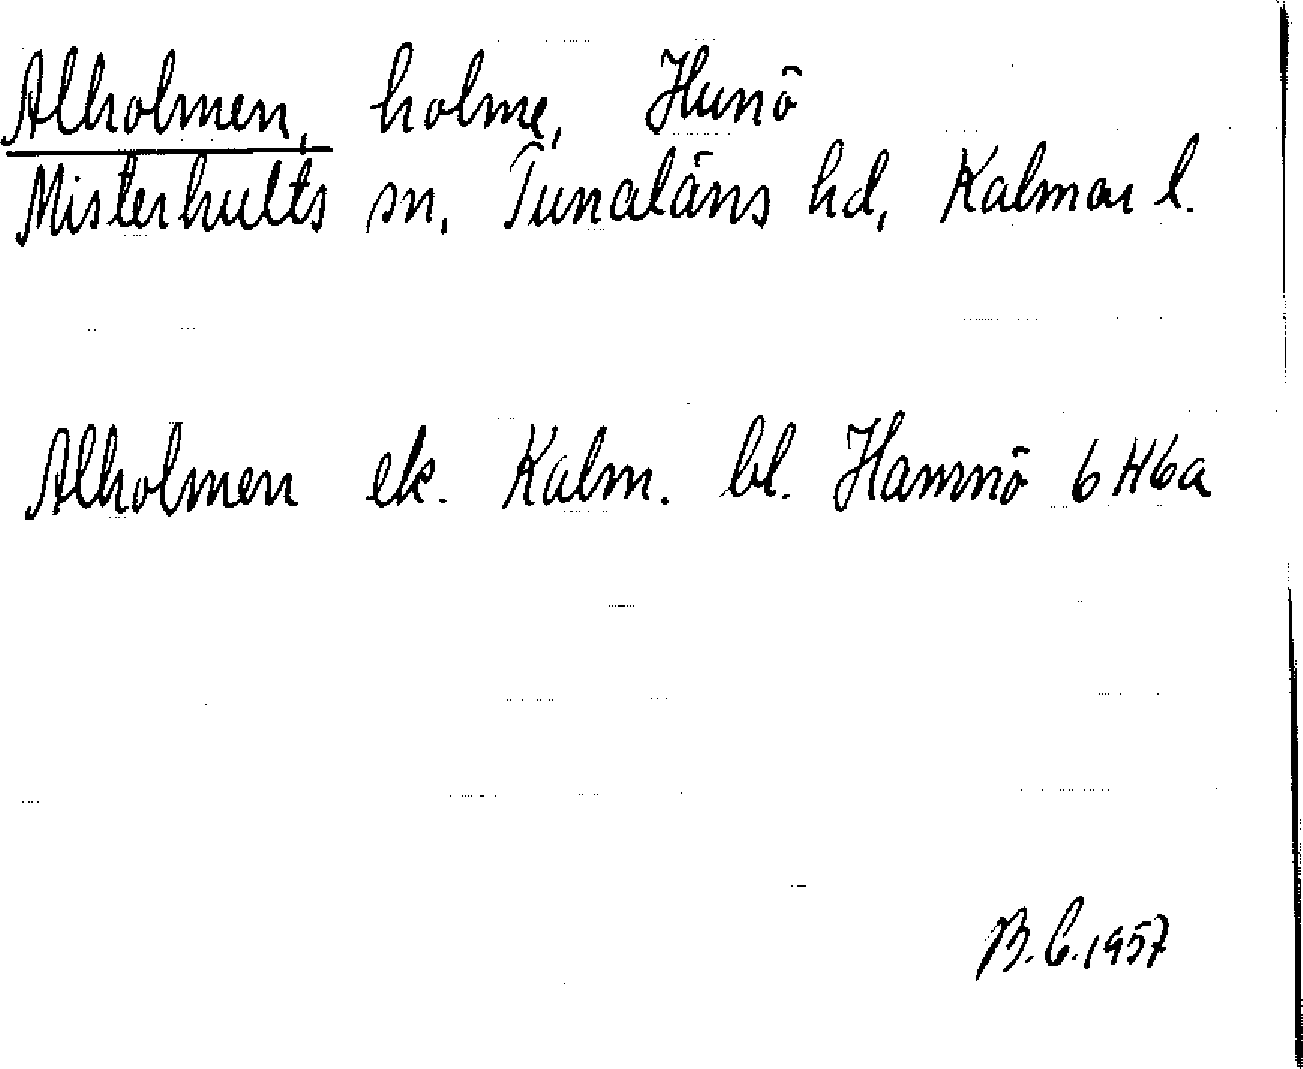 Alholmen, holme, Hunö
Misterhults sn, Tunaläns hd, Kalmar l.
Alholmen ek. Kalm. bl. Hamnö 6H6a
B.C.1957